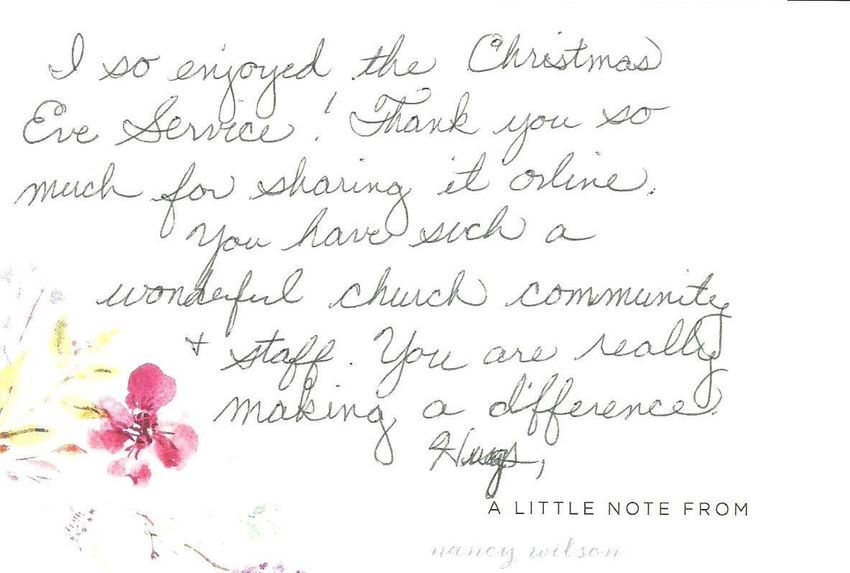 I so enjoyed the Christmas
Eve Service! Thank you so
much for sharing it online.
You have such a
wonderful church community
+ staff. You are really
making a difference.
Hugs,
A LITTLE NOTE FROM
nancy wilson